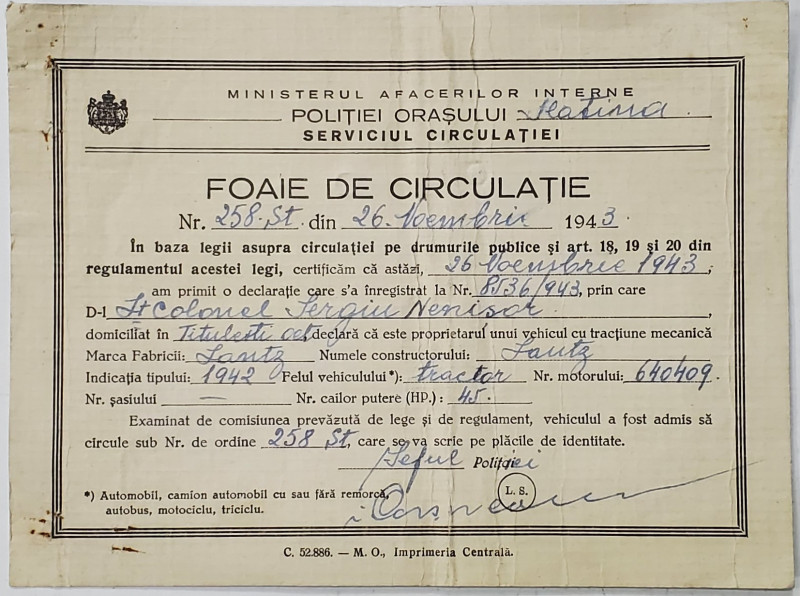 MINISTERUL AFACERILOR INTERNE
POLIȚIEI ORAȘULUI Slatina
SERVICIUL CIRCULAȚIEI
FOAIE DE CIRCULAȚIE
Nr. 258. St. din 26. Noembrie 1943.
În baza legii asupra circulației pe drumurile publice și art. 18, 19 și 20 din
regulamentul acestei legi, certificăm că astăzi, 26 Noembrie 1943;
am primit o declarație care s'a înregistrat la Nr. 8536/943, prin care
D-l Lt Colonel Sergiu Nenișor,
domiciliat în Titulesti Olt, declară că este proprietarul unui vehicul cu tracțiune mecanică
Marca Fabricii: Lantz Numele constructorului: Lantz
Indicația tipului: 1942 Felul vehiculului *): tractor Nr. motorului: 640409.
Nr. șasiului — Nr. cailor putere (HP.): 45.
Examinat de comisiunea prevăzută de lege și de regulament, vehiculul a fost admis să
circule sub Nr. de ordine 258 St, care se va scrie pe plăcile de identitate.
Șeful Poliției
*) Automobil, camion automobil cu sau fără remorcă,
autobus, motociclu, triciclu.
L. S.
C. 52.886. — M. O., Imprimeria Centrală.